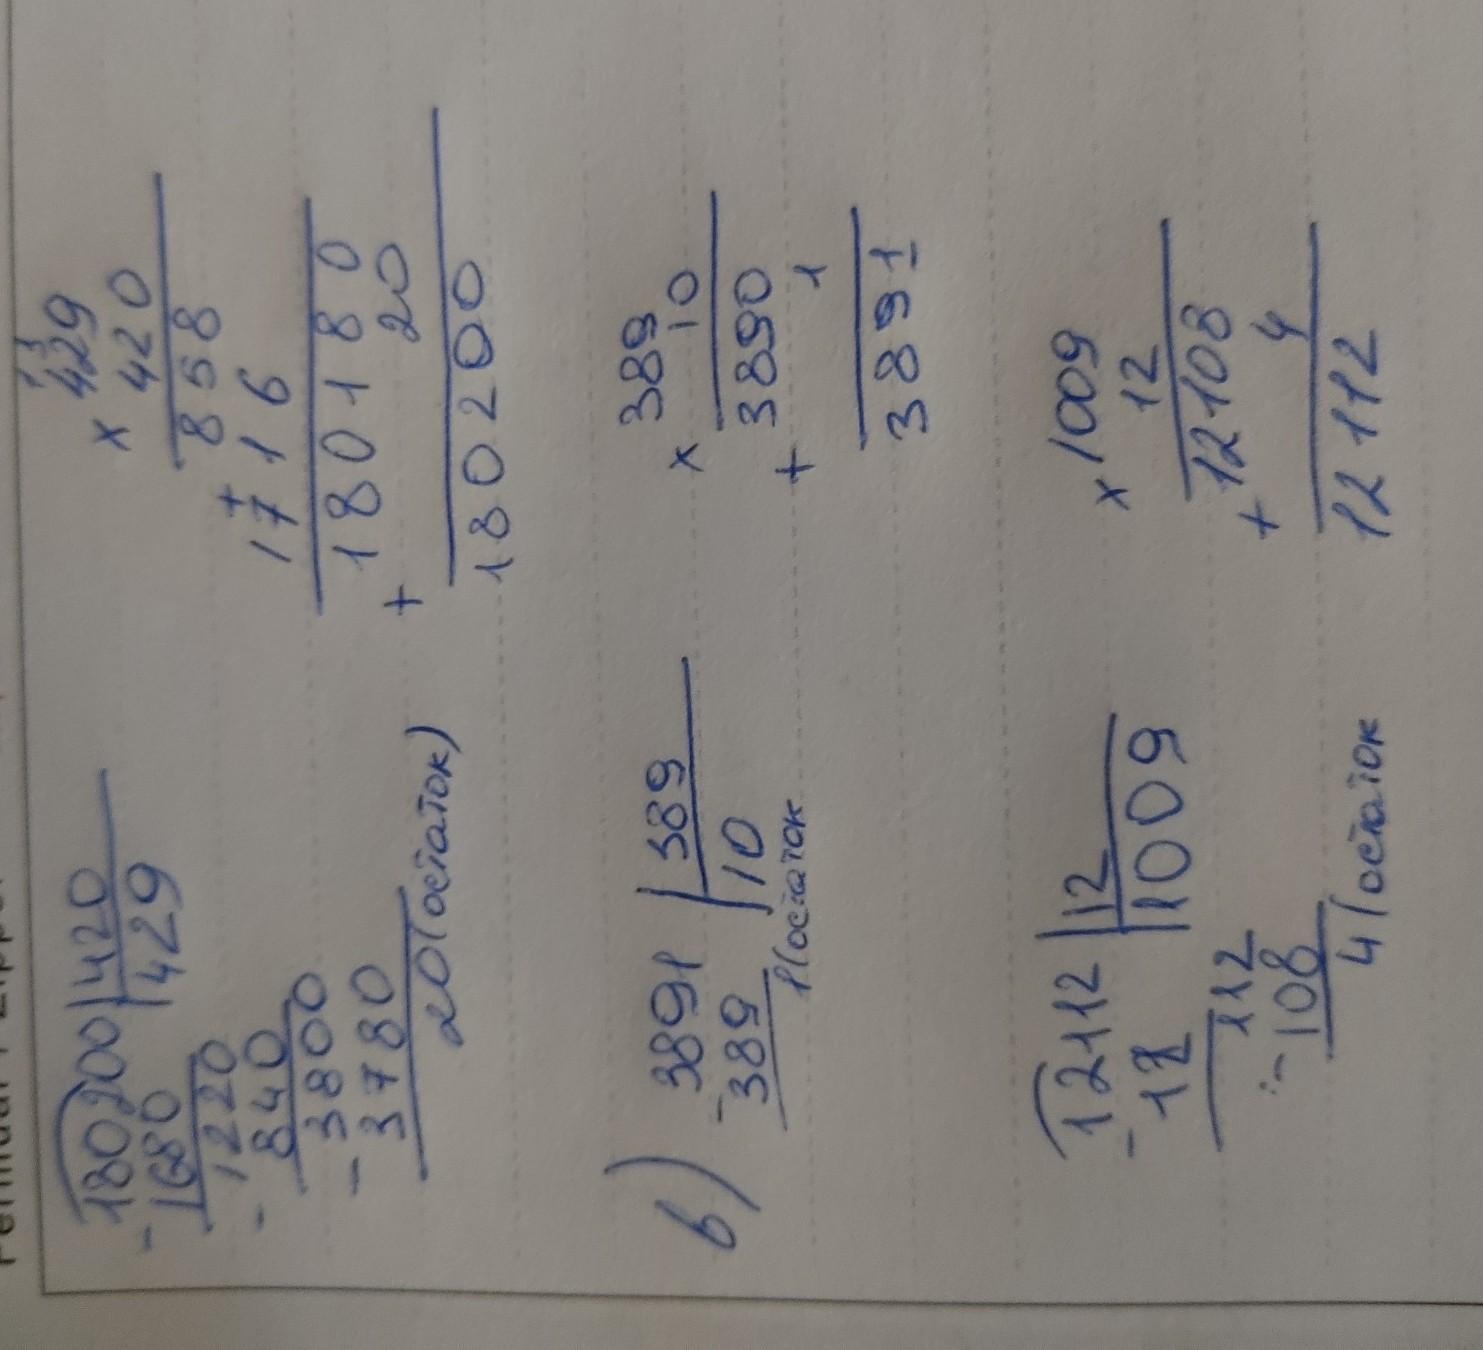 180200 | 420
- 1680 | 429
1220
- 840
3800
- 3780
20 (остаток)
429
× 420
858
+
1716
180180
+ 20
180200
в) 3891 | 389
- 389 | 10
1 (остаток
389
× 10
3890
+ 1
3891
12112 | 12
- 12 | 1009
112
- 108
4 (остаток
1009
× 12
12108
+ 4
12112